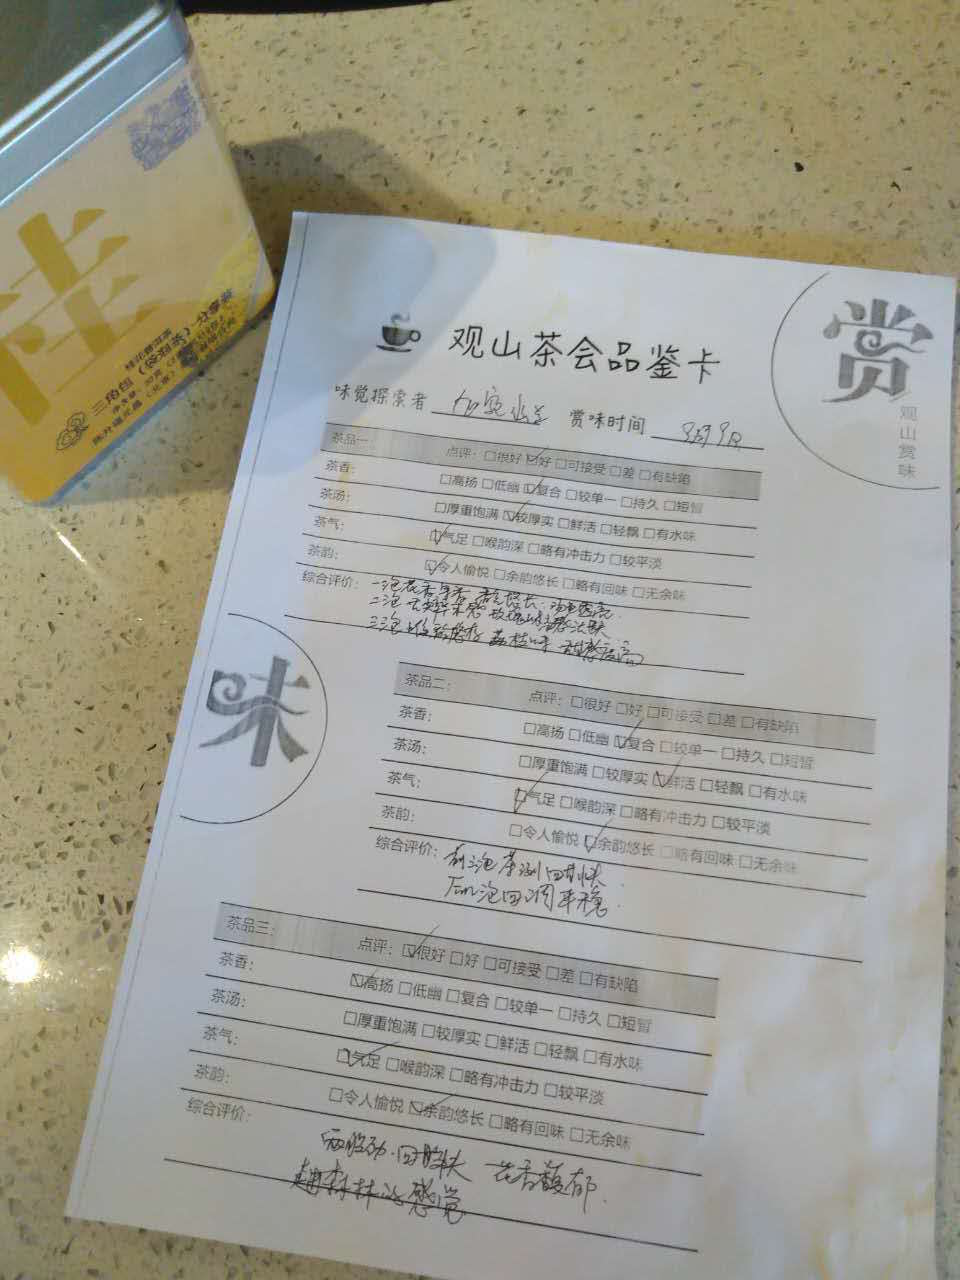 桂
三角亩
赏
观山赏味
观山茶会品鉴卡
味觉探索者 赏味时间 9月9日
茶品一: 点评: □很好 ☑好 □可接受 □差 □有缺陷
茶香: □高扬 □低幽 ☑复合 □较单一 □持久 □短暂
茶汤: □厚重饱满 ☑较厚实 □鲜活 □轻飘 □有水味
茶气: ☑气足 □喉韵深 □略有冲击力 □较平淡
茶韵: ☑令人愉悦 □余韵悠长 □略有回味 □无余味
综合评价: 一泡花香 悠长
二泡
三泡
味
茶品二: 点评: □很好 ☑好 □可接受 □差 □有缺陷
茶香: □高扬 □低幽 ☑复合 □较单一 □持久 □短暂
茶汤: □厚重饱满 □较厚实 ☑鲜活 □轻飘 □有水味
茶气: ☑气足 □喉韵深 □略有冲击力 □较平淡
茶韵: □令人愉悦 ☑余韵悠长 □略有回味 □无余味
综合评价: 前三泡茶涧回甘快
后几泡回润平稳
茶品三: 点评: ☑很好 □好 □可接受 □差 □有缺陷
茶香: ☑高扬 □低幽 □复合 □较单一 □持久 □短暂
茶汤: □厚重饱满 □较厚实 □鲜活 □轻飘 □有水味
茶气: ☑气足 □喉韵深 □略有冲击力 □较平淡
茶韵: □令人愉悦 ☑余韵悠长 □略有回味 □无余味
综合评价: 花香馥郁
森林 感觉